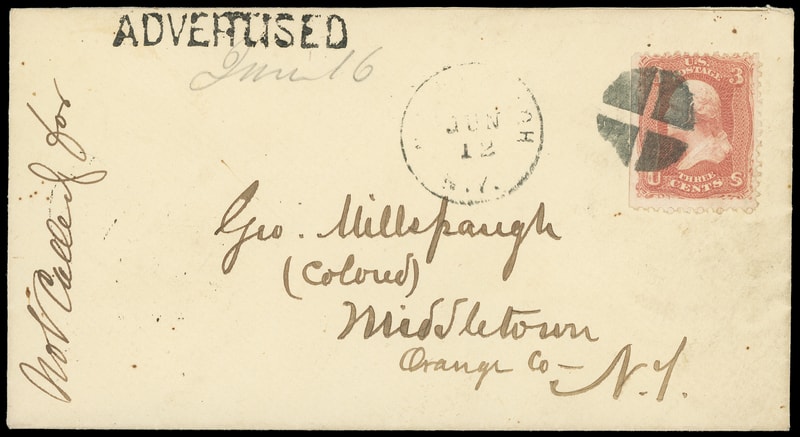 ADVERTISED
June 16
Not Called for
JUN
12
N.Y.
U.S. POSTAGE 3
THREE
U CENTS S
Geo. Millspaugh
(Colored)
Middletown
Orange Co— N.Y.